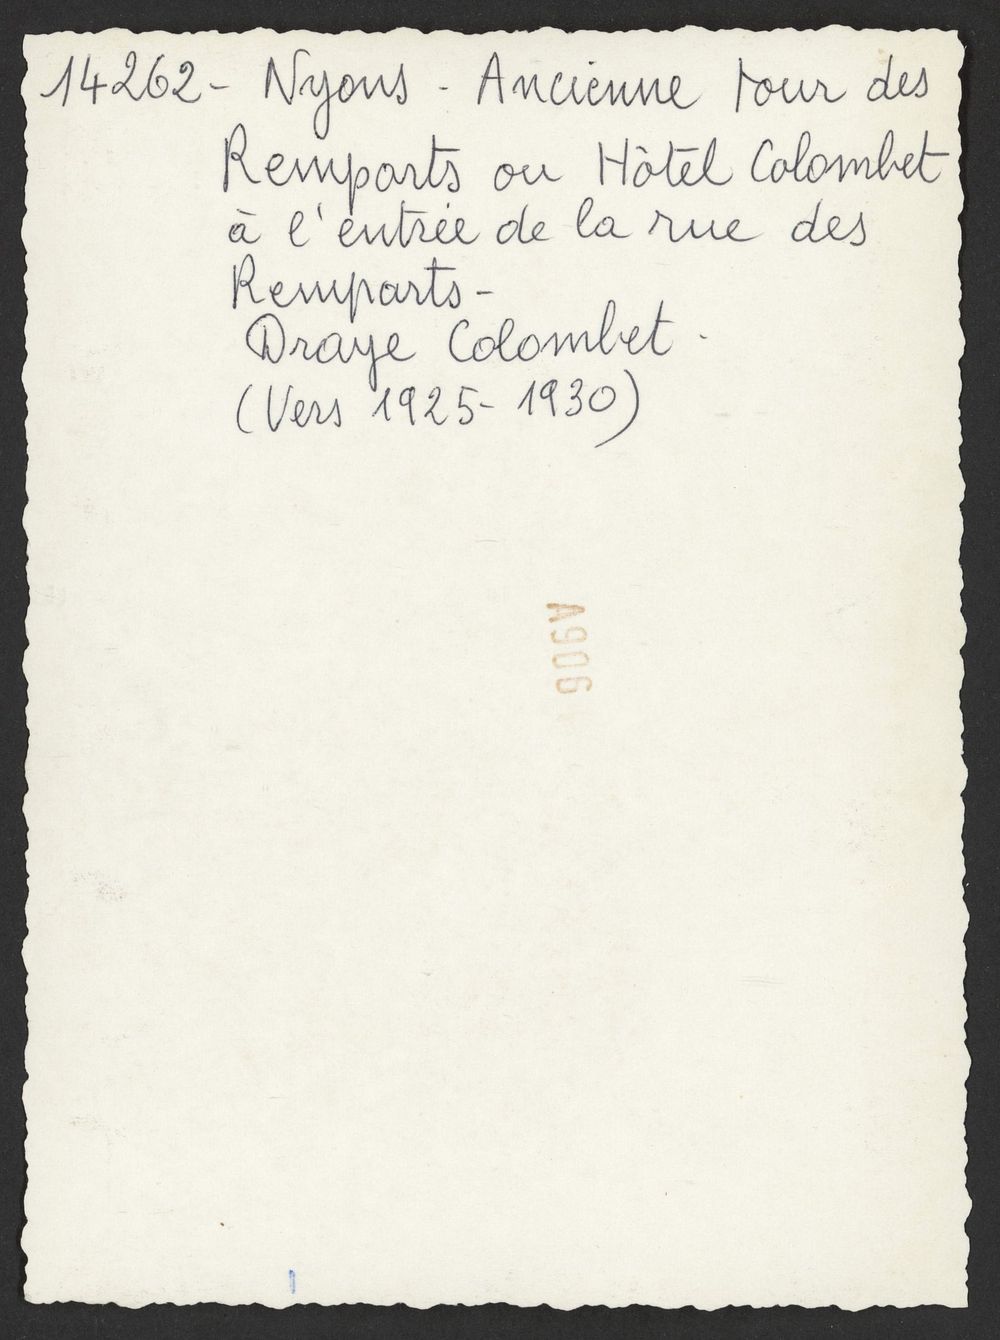 14262- Nyons - Ancienne tour des
Remparts ou Hôtel Colombet
à l'entrée de la rue des
Remparts-
Draye Colombet.
(Vers 1925-1930)
A906